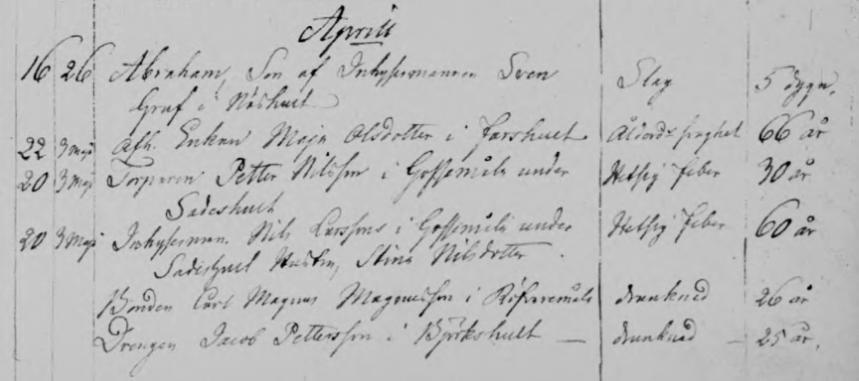 Aprill
16 26 Abraham, Son af Inhysesmannen Sven Slag 5 dygn.
Graf i Näshult
22 3 Maji Afl. Enkan Maja Olsdotter i Farshult Ålderdoms 66 år
20 3 Maji Torparen Petter Nilsson i Gossamåla under Hetsig feber 30 år
Sadeshult
20 3 Maji Inhysesman Nils Larssons i Gossamåla under Hetsig feber 60 år
Sadeshult Hustru, Stina Nilsdotter.
Bonden Carl Magnus Magnusson i drunknad 26 år
Drengen Jacob Pettersson i Björkshult — drunknad — 25 år.